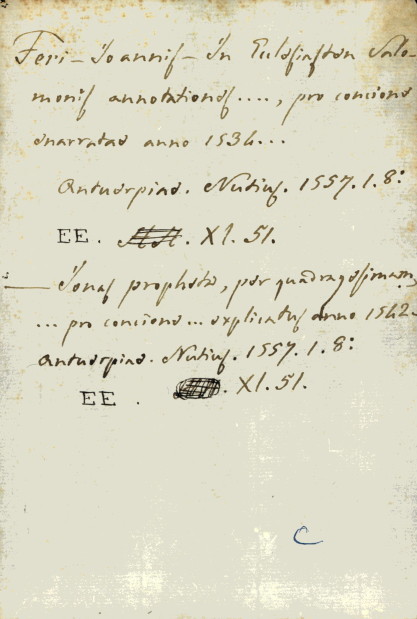 Feri - Joannis - In Ecclesiasten Salo-
monis annotationes ...., pro concione
enarratae anno 1534...
Antuerpiae. Nutius. 1557. 1. 8:
EE. XI. 51.
— Jonas propheta, per quadragesimam
... pro concione ... explicatus anno 1542.
Antuerpiae. Nutius. 1557. 1. 8:
EE . XI. 51.
C